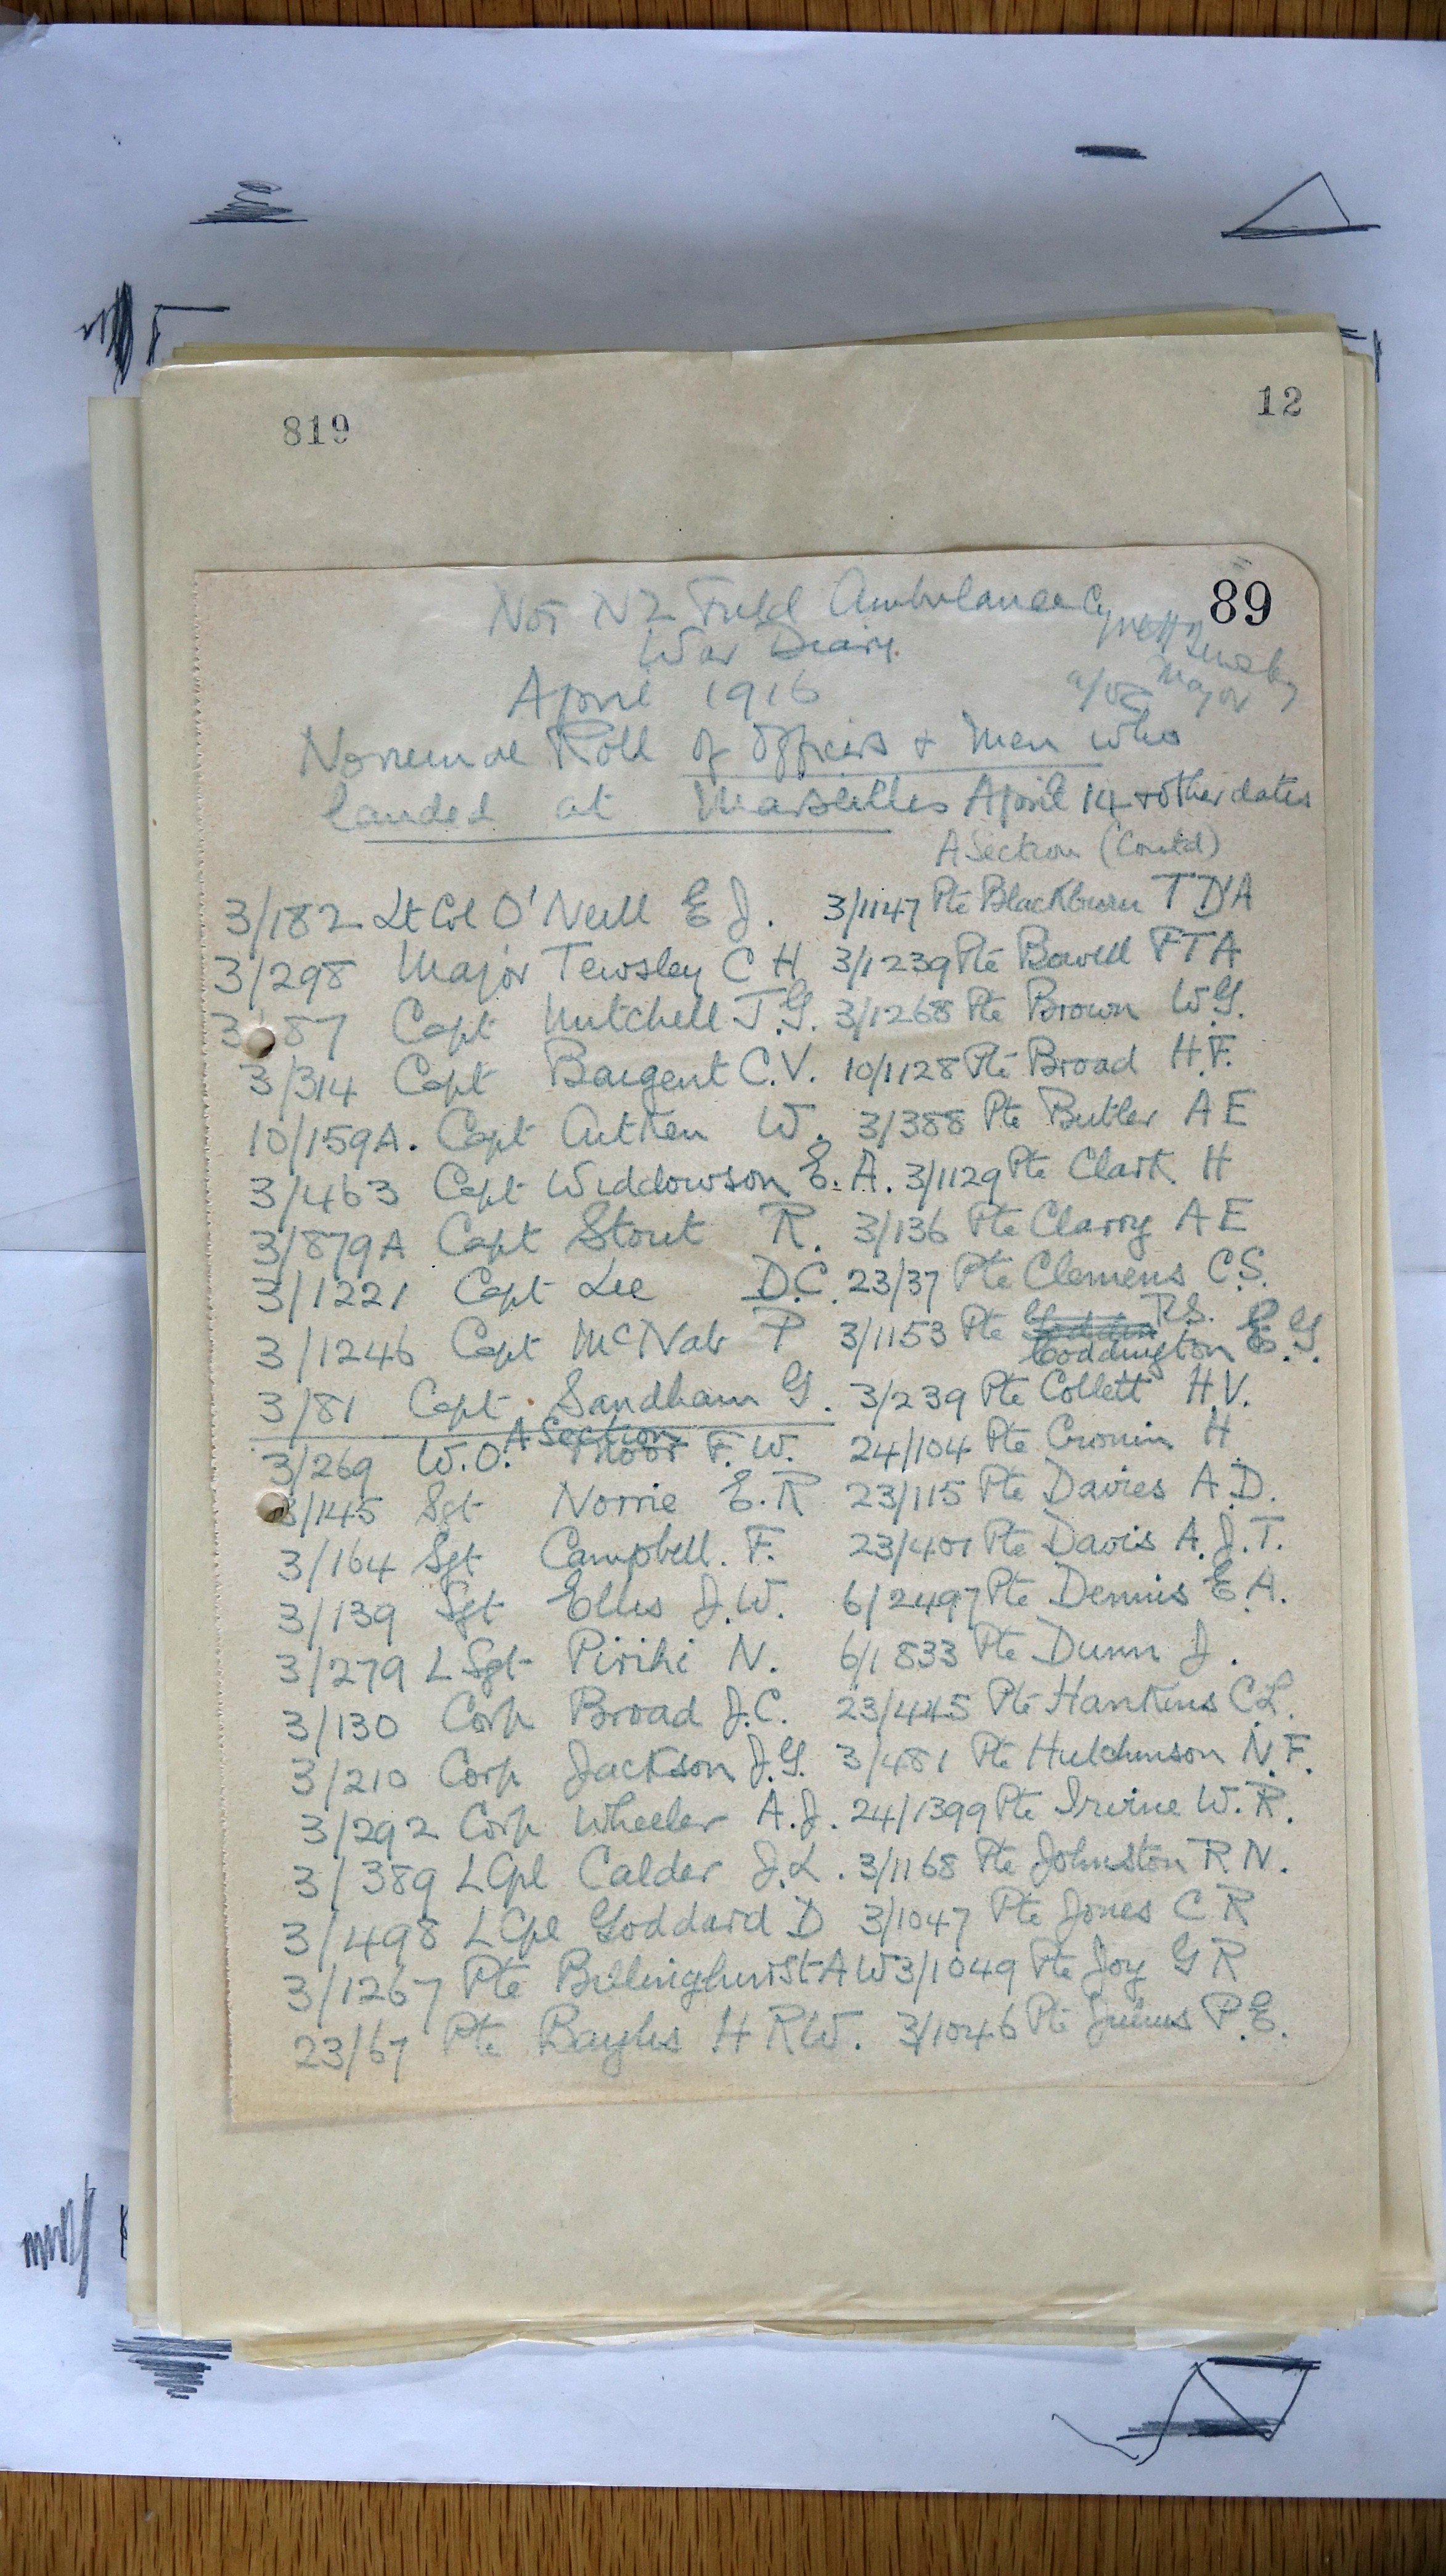 819
12
89
No 1 NZ Field Ambulance
War Diary.
April 1916
Major
Nominal Roll of Officers + Men who
landed at Marseilles April 14 + other dates
A Section (Contd)
3/182 Lt Col O'Neill E J.
3/298 Major Tewsley C H
3/87 Capt Mitchell J.G.
3/314 Capt Bargent C.V.
10/159A. Capt Aitken W.
3/463 Capt Widdowson E. A.
3/879A Capt Stout R.
3/1221 Capt Lee D.C.
3/1246 Capt McNab P
3/81 Capt Sandham G.
A Section
3/269 W.O. Moor F. W.
3/145 Sgt Norrie E. R
3/164 Sgt Campbell. F.
3/139 Sgt Ellis J.W.
3/279 L Sgt Pirihi N.
3/130 Corp Broad J.C.
3/210 Corp Jackson J.G.
3/292 Corp Wheeler A.J.
3/389 L Cpl Calder J.L.
3/498 L Cpl Goddard D
3/1267 Pte Billinghurst A W
23/67 Pte Bayliss H R W.
3/1147 Pte Blackburn T D'A
3/1239 Pte Bowell F T A
3/1268 Pte Brown W G.
10/1128 Pte Broad H.F.
3/388 Pte Butler A E
3/1129 Pte Clark H
3/136 Pte Clarry A E
23/37 Pte Clemens C S.
R S.
3/1153 Pte Coddington E. G.
3/239 Pte Collett H.V.
24/104 Pte Cronin H
23/115 Pte Davies A.D.
23/401 Pte Davis A.J.T.
6/2497 Pte Dennis E.A.
6/1833 Pte Dunn J.
23/445 Pte Hankins C L.
3/481 Pte Hutchinson N.F.
24/1399 Pte Irvine W.R.
3/1168 Pte Johnston R N.
3/1047 Pte Jones C R
3/1049 Pte Joy G R
3/1046 Pte Julius P.E.